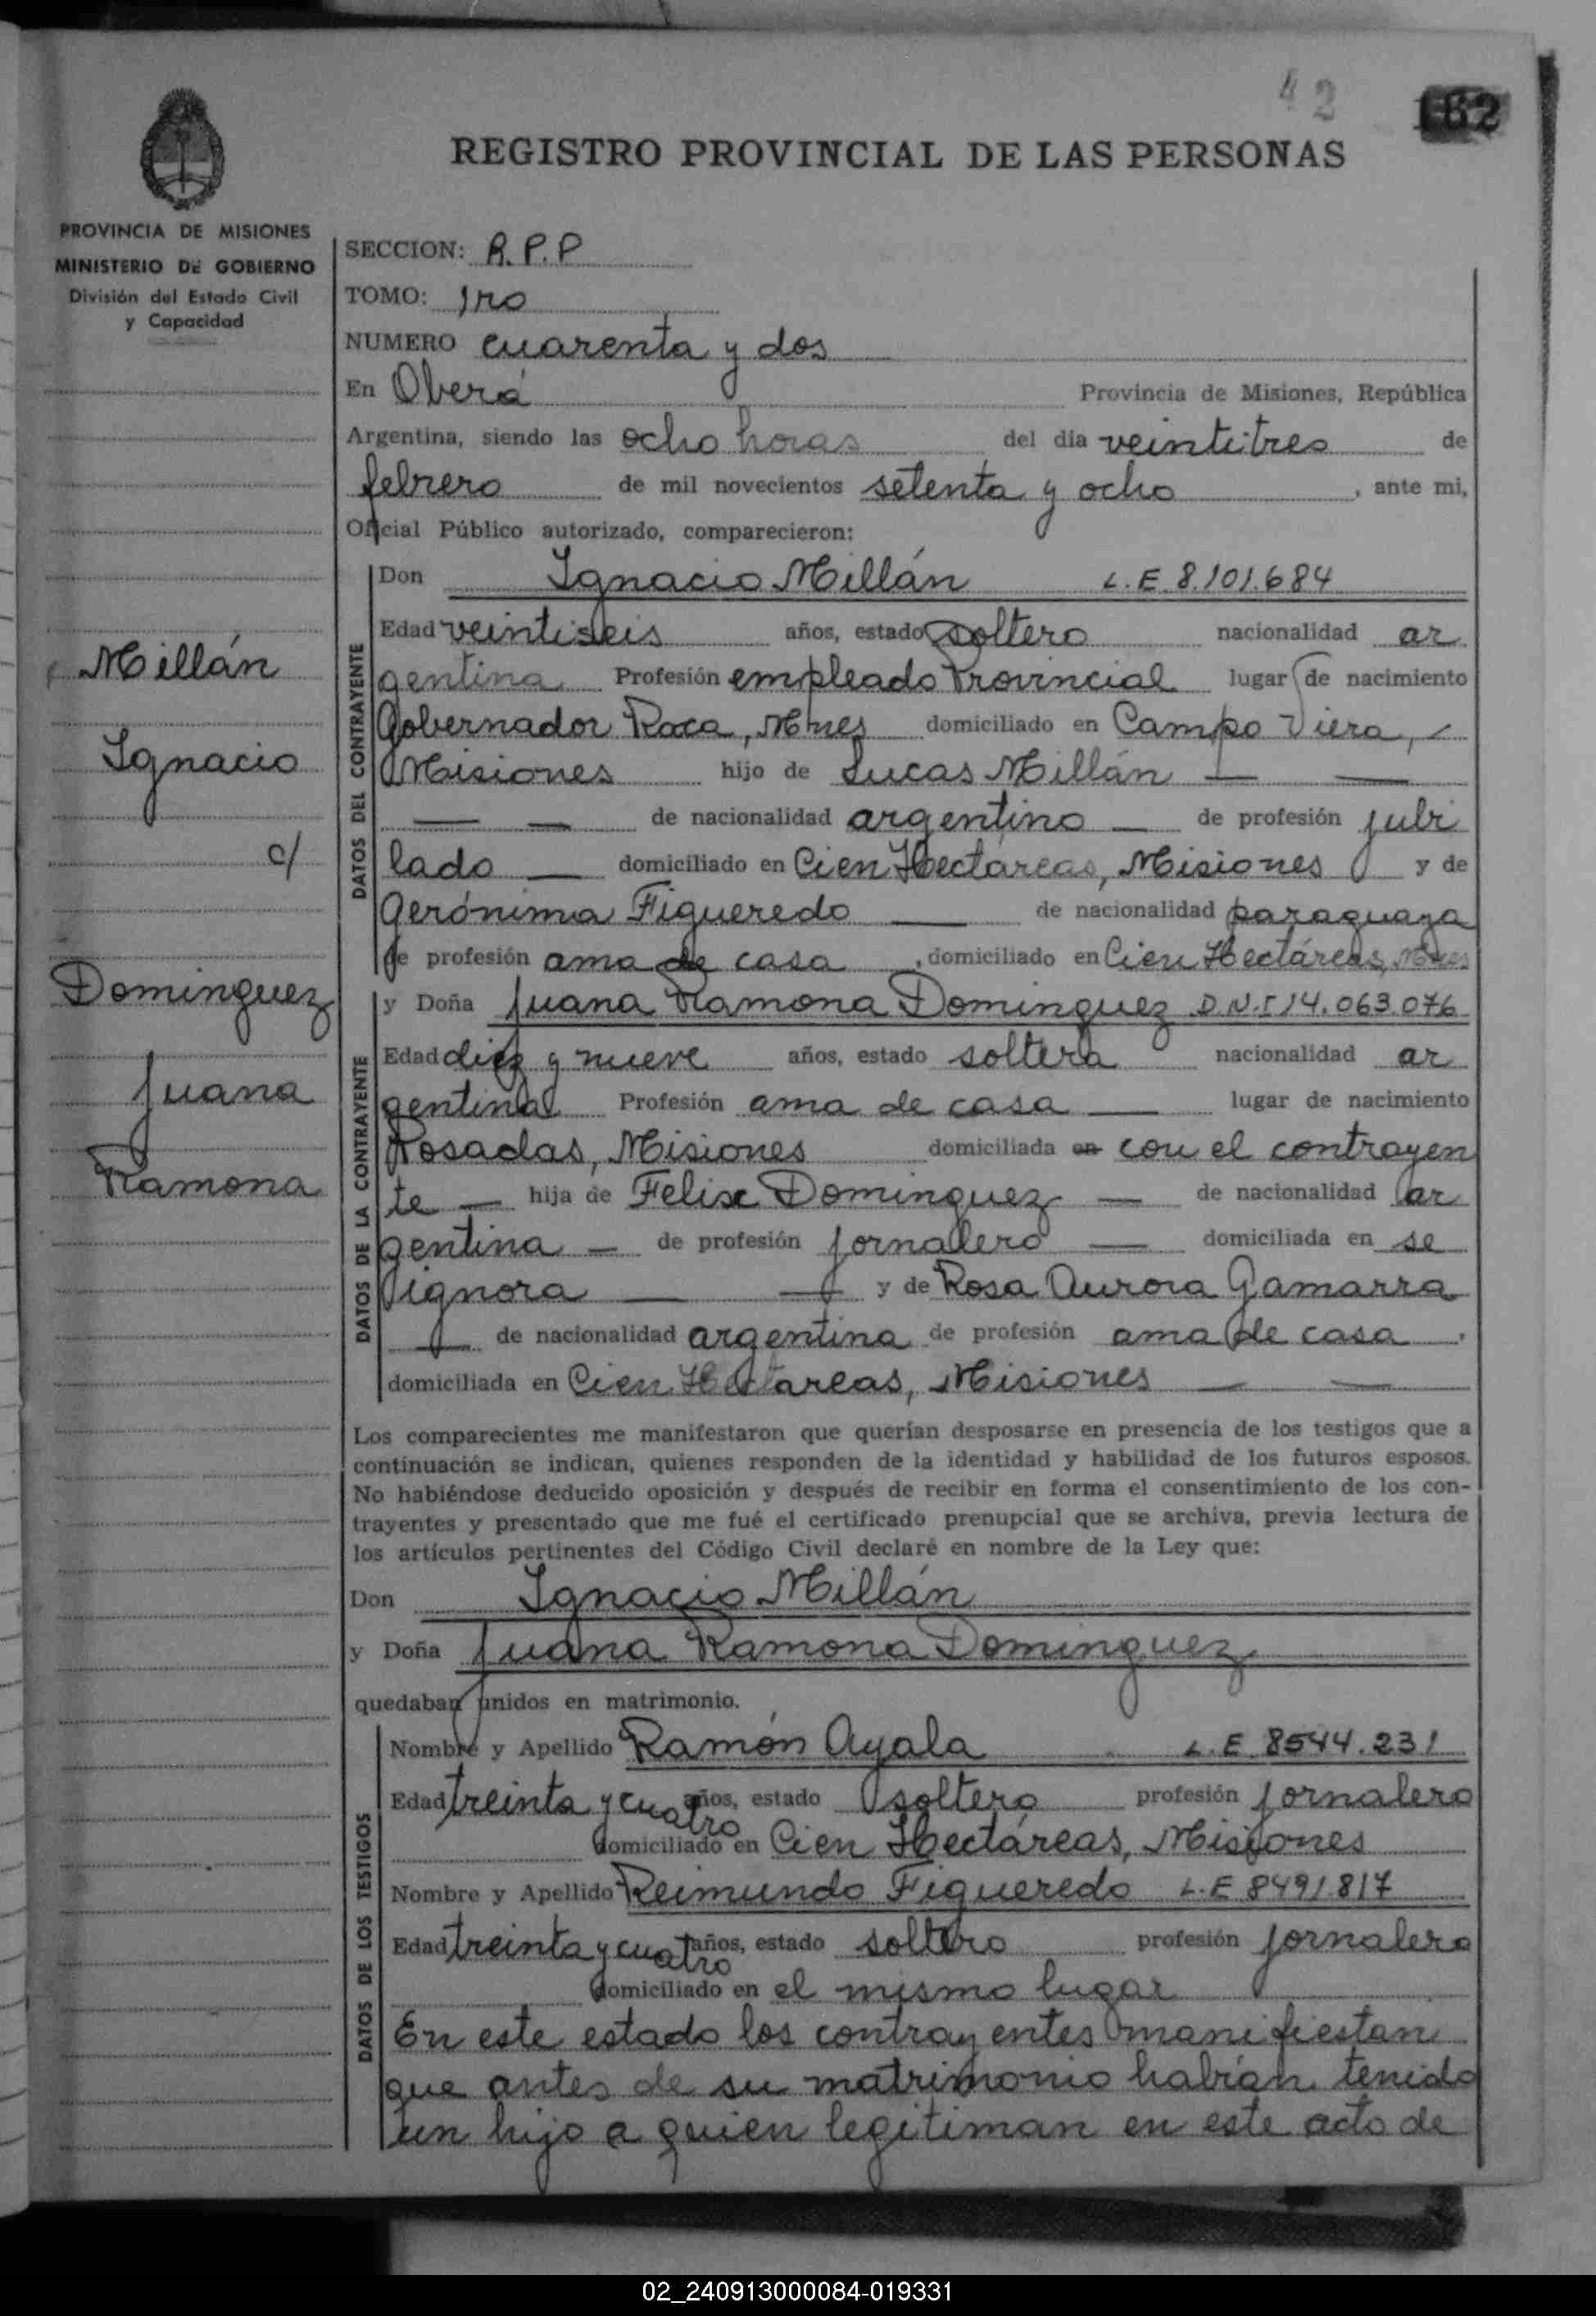 42
162
REGISTRO PROVINCIAL DE LAS PERSONAS
PROVINCIA DE MISIONES
MINISTERIO DE GOBIERNO
División del Estado Civil
y Capacidad
Millán
Ignacio
c/
Dominguez
Juana
Ramona
SECCION: R.P.P
TOMO: 1ro
NUMERO cuarenta y dos
En Oberá Provincia de Misiones, República
Argentina, siendo las ocho horas del día veintitres de
febrero de mil novecientos setenta y ocho, ante mi,
Oficial Público autorizado, comparecieron:
DATOS DEL CONTRAYENTE
Don Ignacio Millán L.E 8.101.684
Edad veintiseis años, estado soltero nacionalidad ar
gentina Profesión empleado Provincial lugar de nacimiento
Gobernador Roca, Mnes domiciliado en Campo Viera,
Misiones hijo de Lucas Millán — —
— — de nacionalidad argentino — de profesión jubi
lado — domiciliado en Cien Hectáreas, Misiones y de
Gerónima Figueredo — de nacionalidad paraguaya
de profesión ama de casa, domiciliado en Cien Hectáreas, Mnes
DATOS DE LA CONTRAYENTE
y Doña Juana Ramona Dominguez D.N.I 14.063.076
Edad diez y nueve años, estado soltera nacionalidad ar
gentina Profesión ama de casa — lugar de nacimiento
Posadas, Misiones domiciliada en con el contrayen
te — hija de Felix Dominguez — de nacionalidad ar
gentina — de profesión jornalero — domiciliada en se
ignora — — y de Rosa Aurora Gamarra
— de nacionalidad argentina de profesión ama de casa.
domiciliada en Cien Hectareas, Misiones — —
Los comparecientes me manifestaron que querían desposarse en presencia de los testigos que a
continuación se indican, quienes responden de la identidad y habilidad de los futuros esposos.
No habiéndose deducido oposición y después de recibir en forma el consentimiento de los con-
trayentes y presentado que me fué el certificado prenupcial que se archiva, previa lectura de
los artículos pertinentes del Código Civil declaré en nombre de la Ley que:
Don Ignacio Millán
y Doña Juana Ramona Dominguez
quedaban unidos en matrimonio.
DATOS DE LOS TESTIGOS
Nombre y Apellido Ramón Ayala L.E 8544.231
Edad treinta y cuatro años, estado soltero profesión jornalero
domiciliado en Cien Hectáreas, Misiones
Nombre y Apellido Reimundo Figueredo L.E 8491.817
Edad treinta y cuatro años, estado soltero profesión jornalero
domiciliado en el mismo lugar
En este estado los contrayentes manifiestan
que antes de su matrimonio habían tenido
un hijo a quien legitiman en este acto de
02_240913000084-019331